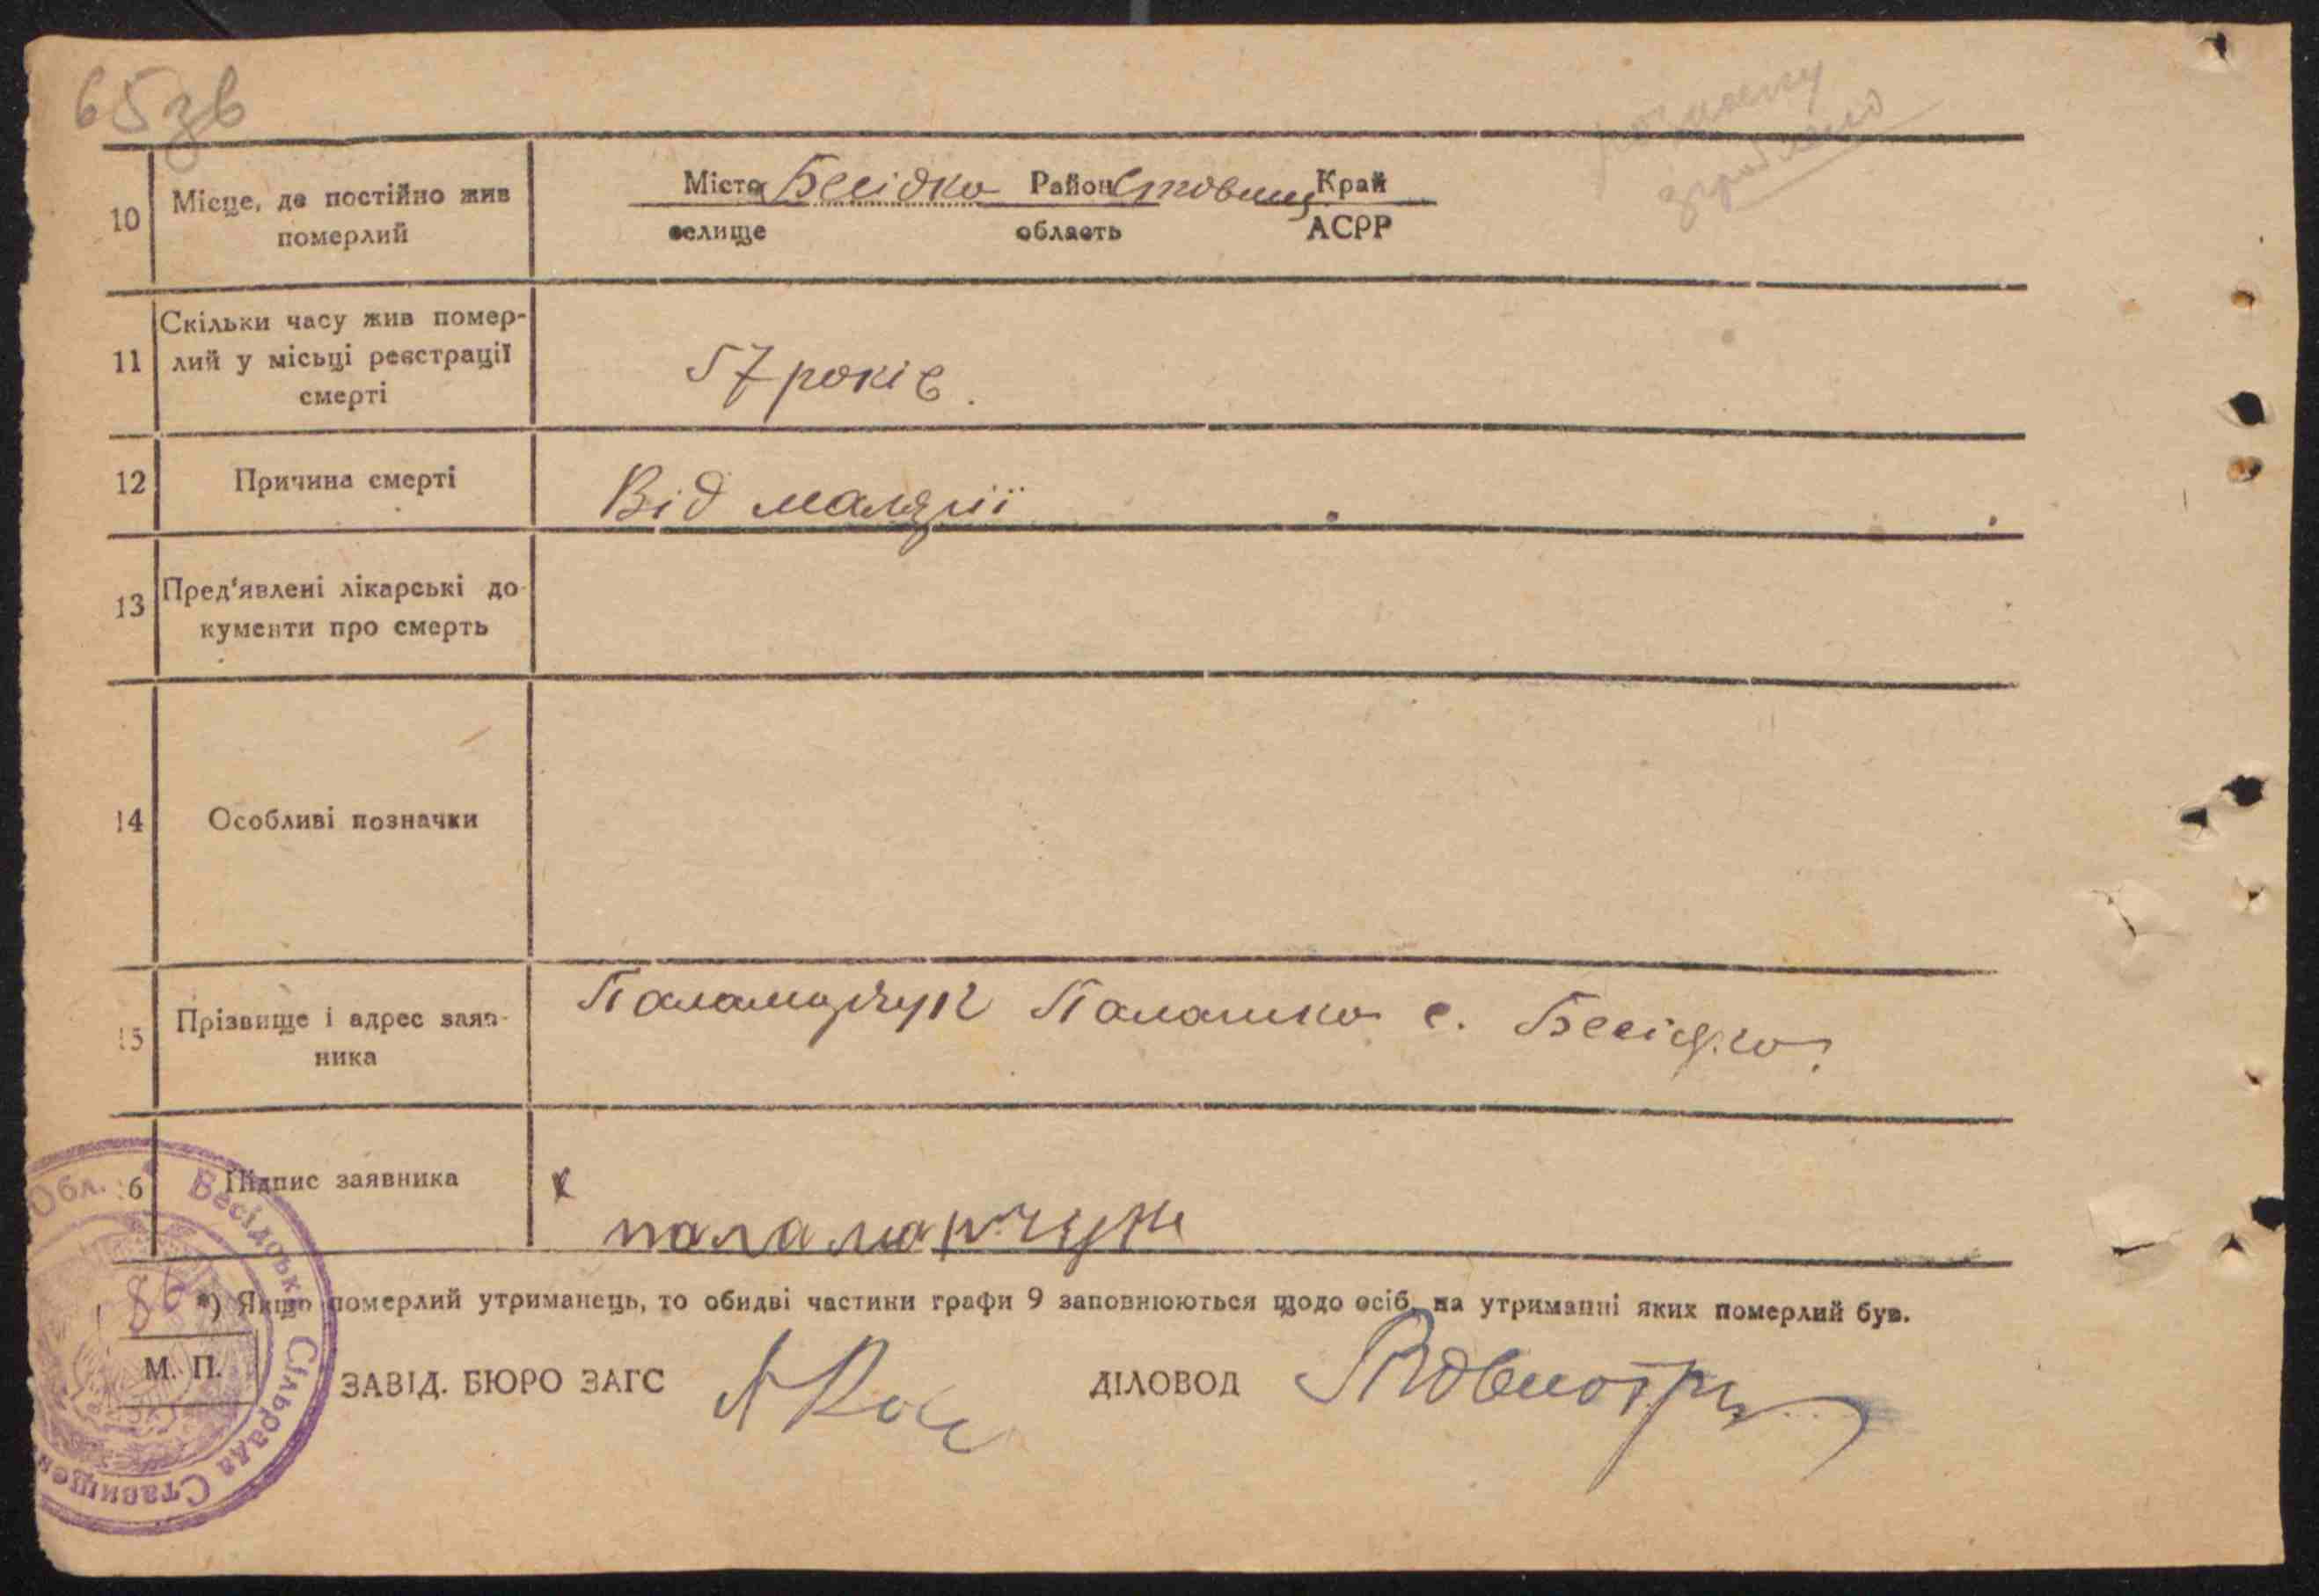 65зв
10 Місце, де постійно жив померлий
Місто Бесідка Район Ставищ Край
селище область АСРР
11 Скільки часу жив помер-
лий у місьці реєстрації
смерті
57 років.
12 Причина смерті Від малярії
13 Пред'явлені лікарські до-
кументи про смерть
14 Особливі позначки
15 Прізвище і адрес заяв-
ника
Паламарчук Палашка с. Бесідка.
16 Підпис заявника
паламарчук
*) Якщо померлий утриманець, то обидві частини графи 9 заповнюються щодо осіб, на утриманні яких померлий був.
М. П.
ЗАВІД. БЮРО ЗАГС ДІЛОВОД
Обл. Бесідська Сільрада Ставищен